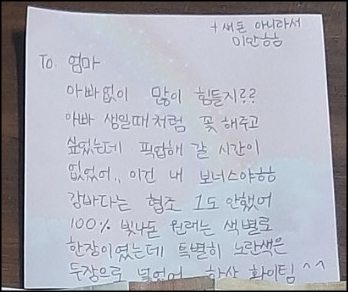 + 새돈 아니라서
미안ㅎㅎ
To. 엄마
아빠없이 많이 힘들지??
아빠 생일때처럼 꽃 해주고
싶었는데 픽업해 갈 시간이
없었어.. 이건 내 보너스야ㅎㅎ
강바다는 협조 1도 안했어
100% 빛나돈 원래는 색별로
한장이였는데 특별히 노란색은
두장으로 넣었어 항상 화이팅^^